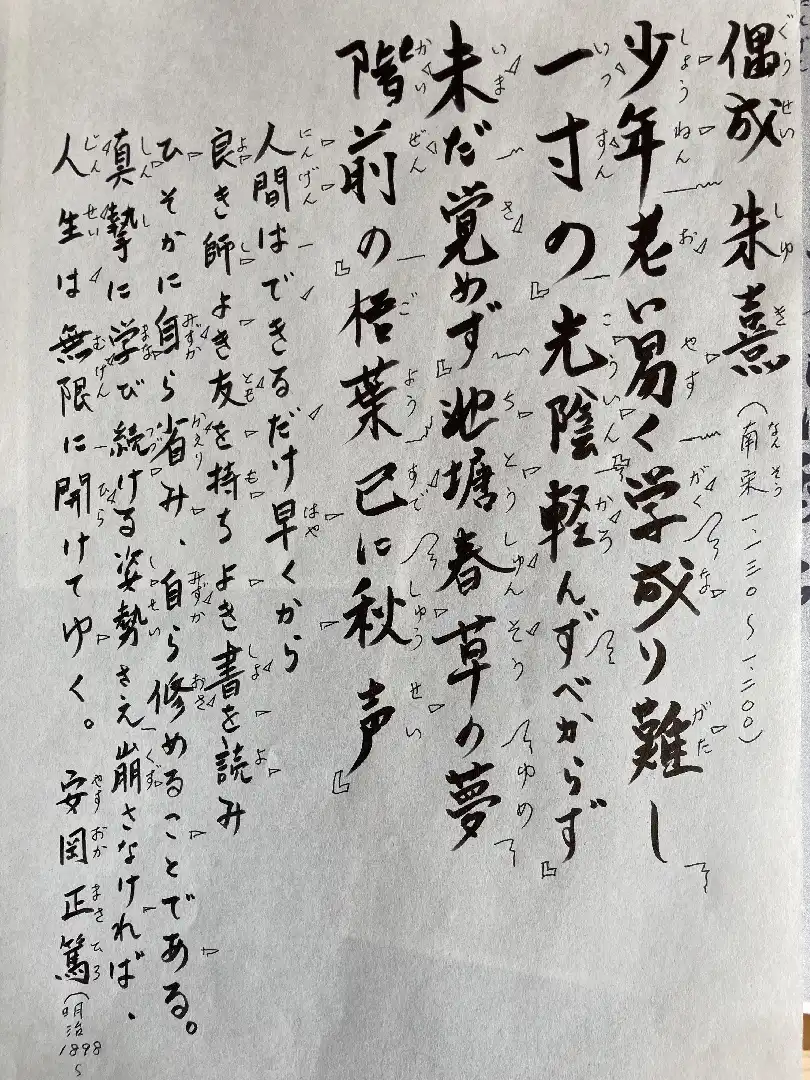 偶成 朱熹(南宋一一三〇~一二〇〇)
少年老い易く学成り難し
一寸の光陰軽んずべからず
未だ覚めず池塘春草の夢
階前の梧葉已に秋声
人間はできるだけ早くから
良き師よき友を持ちよき書を読み
ひそかに自ら省み、自ら修めることである。
真摯に学び続ける姿勢さえ崩さなければ、
人生は無限に開けてゆく。 安岡正篤(明治1898~